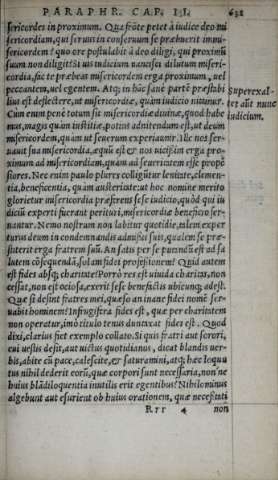 PARAPHR. CAP. II. 632
sericordes in proximum. Qua frōte petet à iudice deo mi
sericordiam, qui seruus in conseruum se præbuerit immi-
sericordem? quo ore postulabit à deo diligi, qui proximū
suum non diligit? Si uis iudicium nancisci dilutum miseri-
cordia, fac te præbeas misericordem erga proximum, uel
peccantem, uel egentem. Atq; in hāc sanè partē præstabi
lius est deflectere, ut misericordiæ, quàm iudicio nitamur.
Cum enim penè totum sit misericordiæ diuinæ, quod habe
mus, magis quàm iustitiæ, potius adnitendum est, ut deum
misericordem, quàm ut seuerum experiamur. Ille nos ser-
uauit sua misericordia, æquū est & nos uicissim erga pro-
ximum ad misericordiam, quàm ad seueritatem esse prope
siores. Nec enim paulo plures colligūtur lenitate, clemen-
tia, beneficentia, quàm austeritate: ut hoc nomine merito
glorietur misericordia præferens sese iudicio, quòd qui iu
dicij experti fuerant perituri, misericordiæ beneficio ser-
uantur. Nemo nostrum non labitur quotidie, talem exper
turus deum in condemnandis admissis suis, qualem se præ-
stiterit erga fratrem suū. An satis per se putandū est ad sa
lutem cōsequendā, solam fidei professionem? Quid autem
est fides absq; charitate? Porrò res est uiuida charitas, non
cessat, non est ociosa, exerit sese beneficijs ubicunq; adest.
Quæ si desint fratres mei, quæso an inane fidei nomē ser-
uabit hominem? Infrugifera fides est, quæ per charitatem
non operatur, imò titulo tenus duntaxat fides est. Quod
dixi, clarius fiet exemplo collato. Si quis fratri aut sorori,
cui uestis desit, aut uictus quotidianus, dicat blandis uer-
bis, abite cū pace, calescite, & saturamini, atq; hæc loquu
tus nihil dederit eorū, quæ corpori sunt necessaria, non'ne
huius blādiloquentia inutilis erit egentibus? Nihilominus
algebunt aut esurient ob huius orationem, quæ necessitati
Rrr 4 non
Superexal-
tet aūt nunc
iudicium.